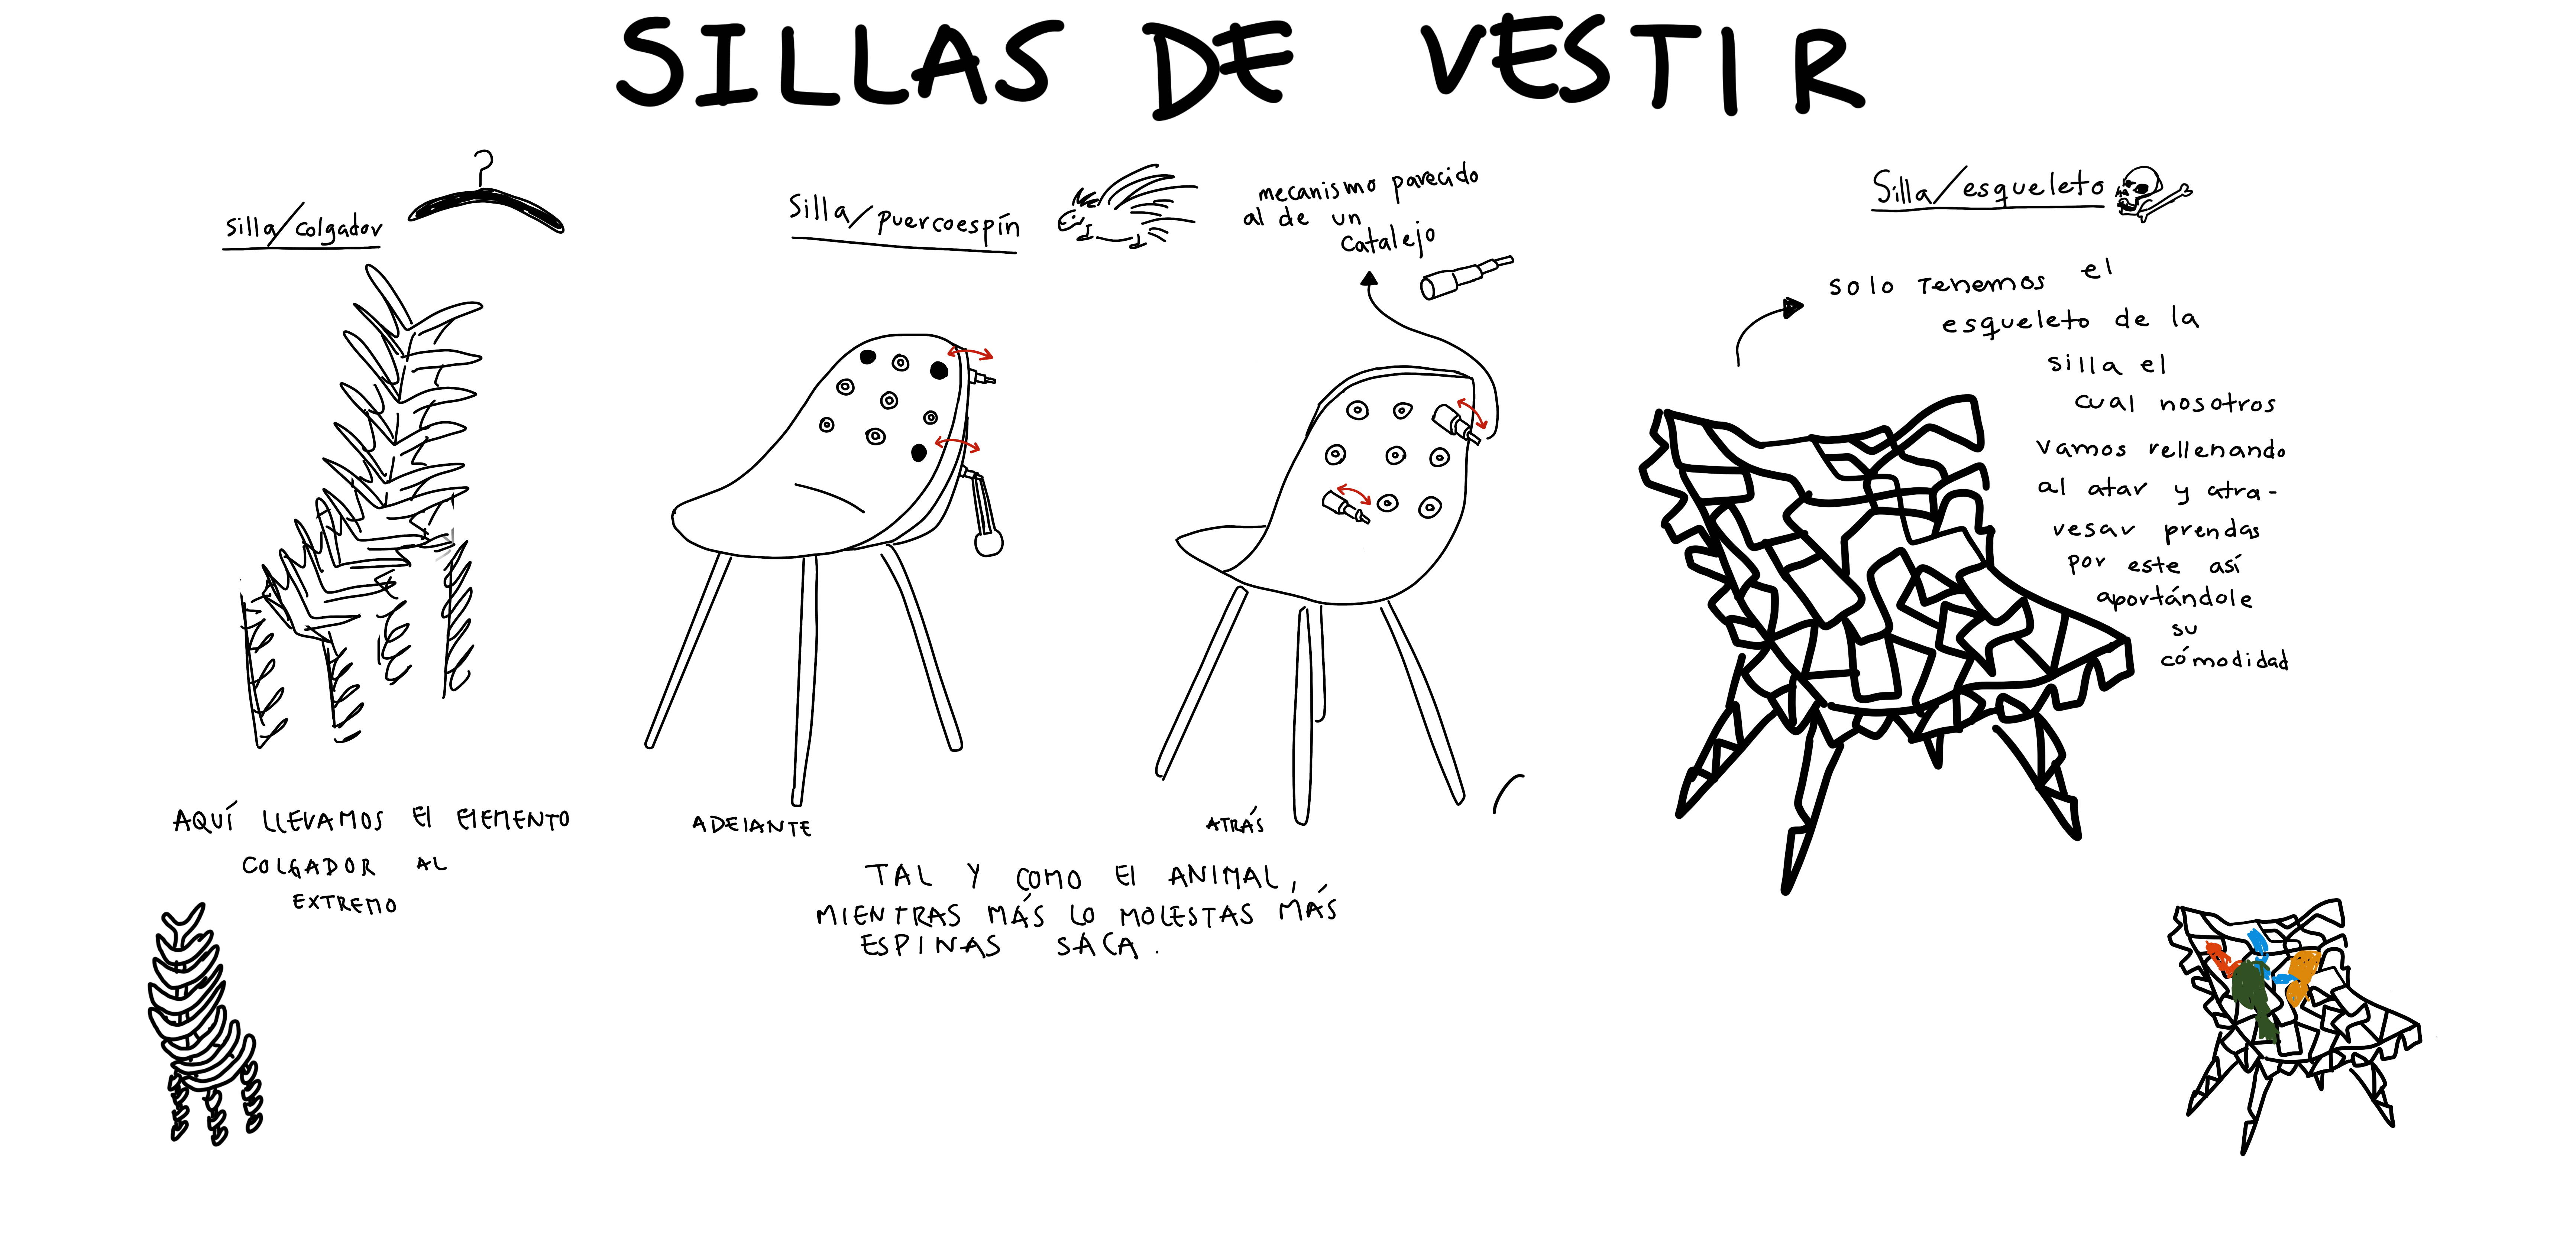 SILLAS DE VESTIR
silla/colgador
AQUÍ LLEVAMOS El ElEMENTO
COLGADOR AL
EXTREMO
Silla/puercoespín
mecanismo parecido
al de un
catalejo
ADElANTE
ATRÁS
TAL Y COMO El ANIMAL,
MIENTRAS MÁS LO MOLESTAS MÁS
ESPINAS SACA.
Silla/esqueleto
solo Tenemos el
esqueleto de la
silla el
cual nosotros
vamos rellenando
al atar y atra-
vesar prendas
por este así
aportándole
su
cómodidad